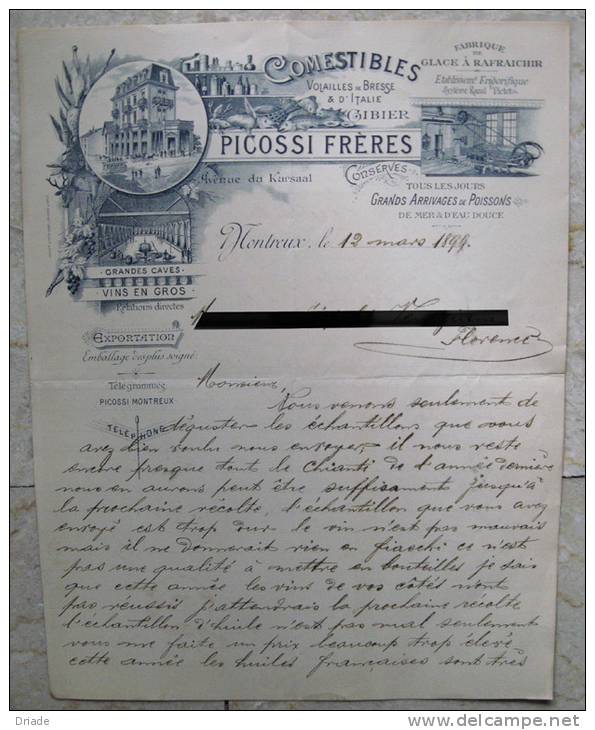 COMESTIBLES
VOLAILLES DE BRESSE
& D'ITALIE
GIBIER
PICOSSI FRÈRES
Avenue du Kursaal
CONSERVES
FABRIQUE
DE
GLACE À RAFRAICHIR
Etablissement Frigorifique
Système Raoul Pictet
TOUS LES JOURS
GRANDS ARRIVAGES DE POISSONS
DE MER & D'EAU DOUCE
GRANDES CAVES
VINS EN GROS
Relations directes
EXPORTATION
Emballage des plus soigné
Télégrammes
PICOSSI MONTREUX
TELEPHONE
Montreux, le 12 mars 1899.
Florence
Monsieur,
Nous venons seulement de
déguster les échantillons que vous
avez bien voulu nous envoyer il nous reste
encore presque tout le Chianti de l'année dernière
nous en aurons peut être suffisament jusqu'à
la prochaine récolte, l'échantillon que vous avez
envoyé est trop dur le vin n'est pas mauvais
mais il ne donnerait rien en fiaschi ce n'est
pas une qualité à mettre en bouteilles je sais
que cette année les vins de vos côtés n'ont
pas reussis j'attendrais la prochaine récolte
l'échantillon d'huile n'est pas mal seulement
vous me faite un prix beaucoup trop élevé
cette année les huiles françaises sont très
Driade
delcampe.net